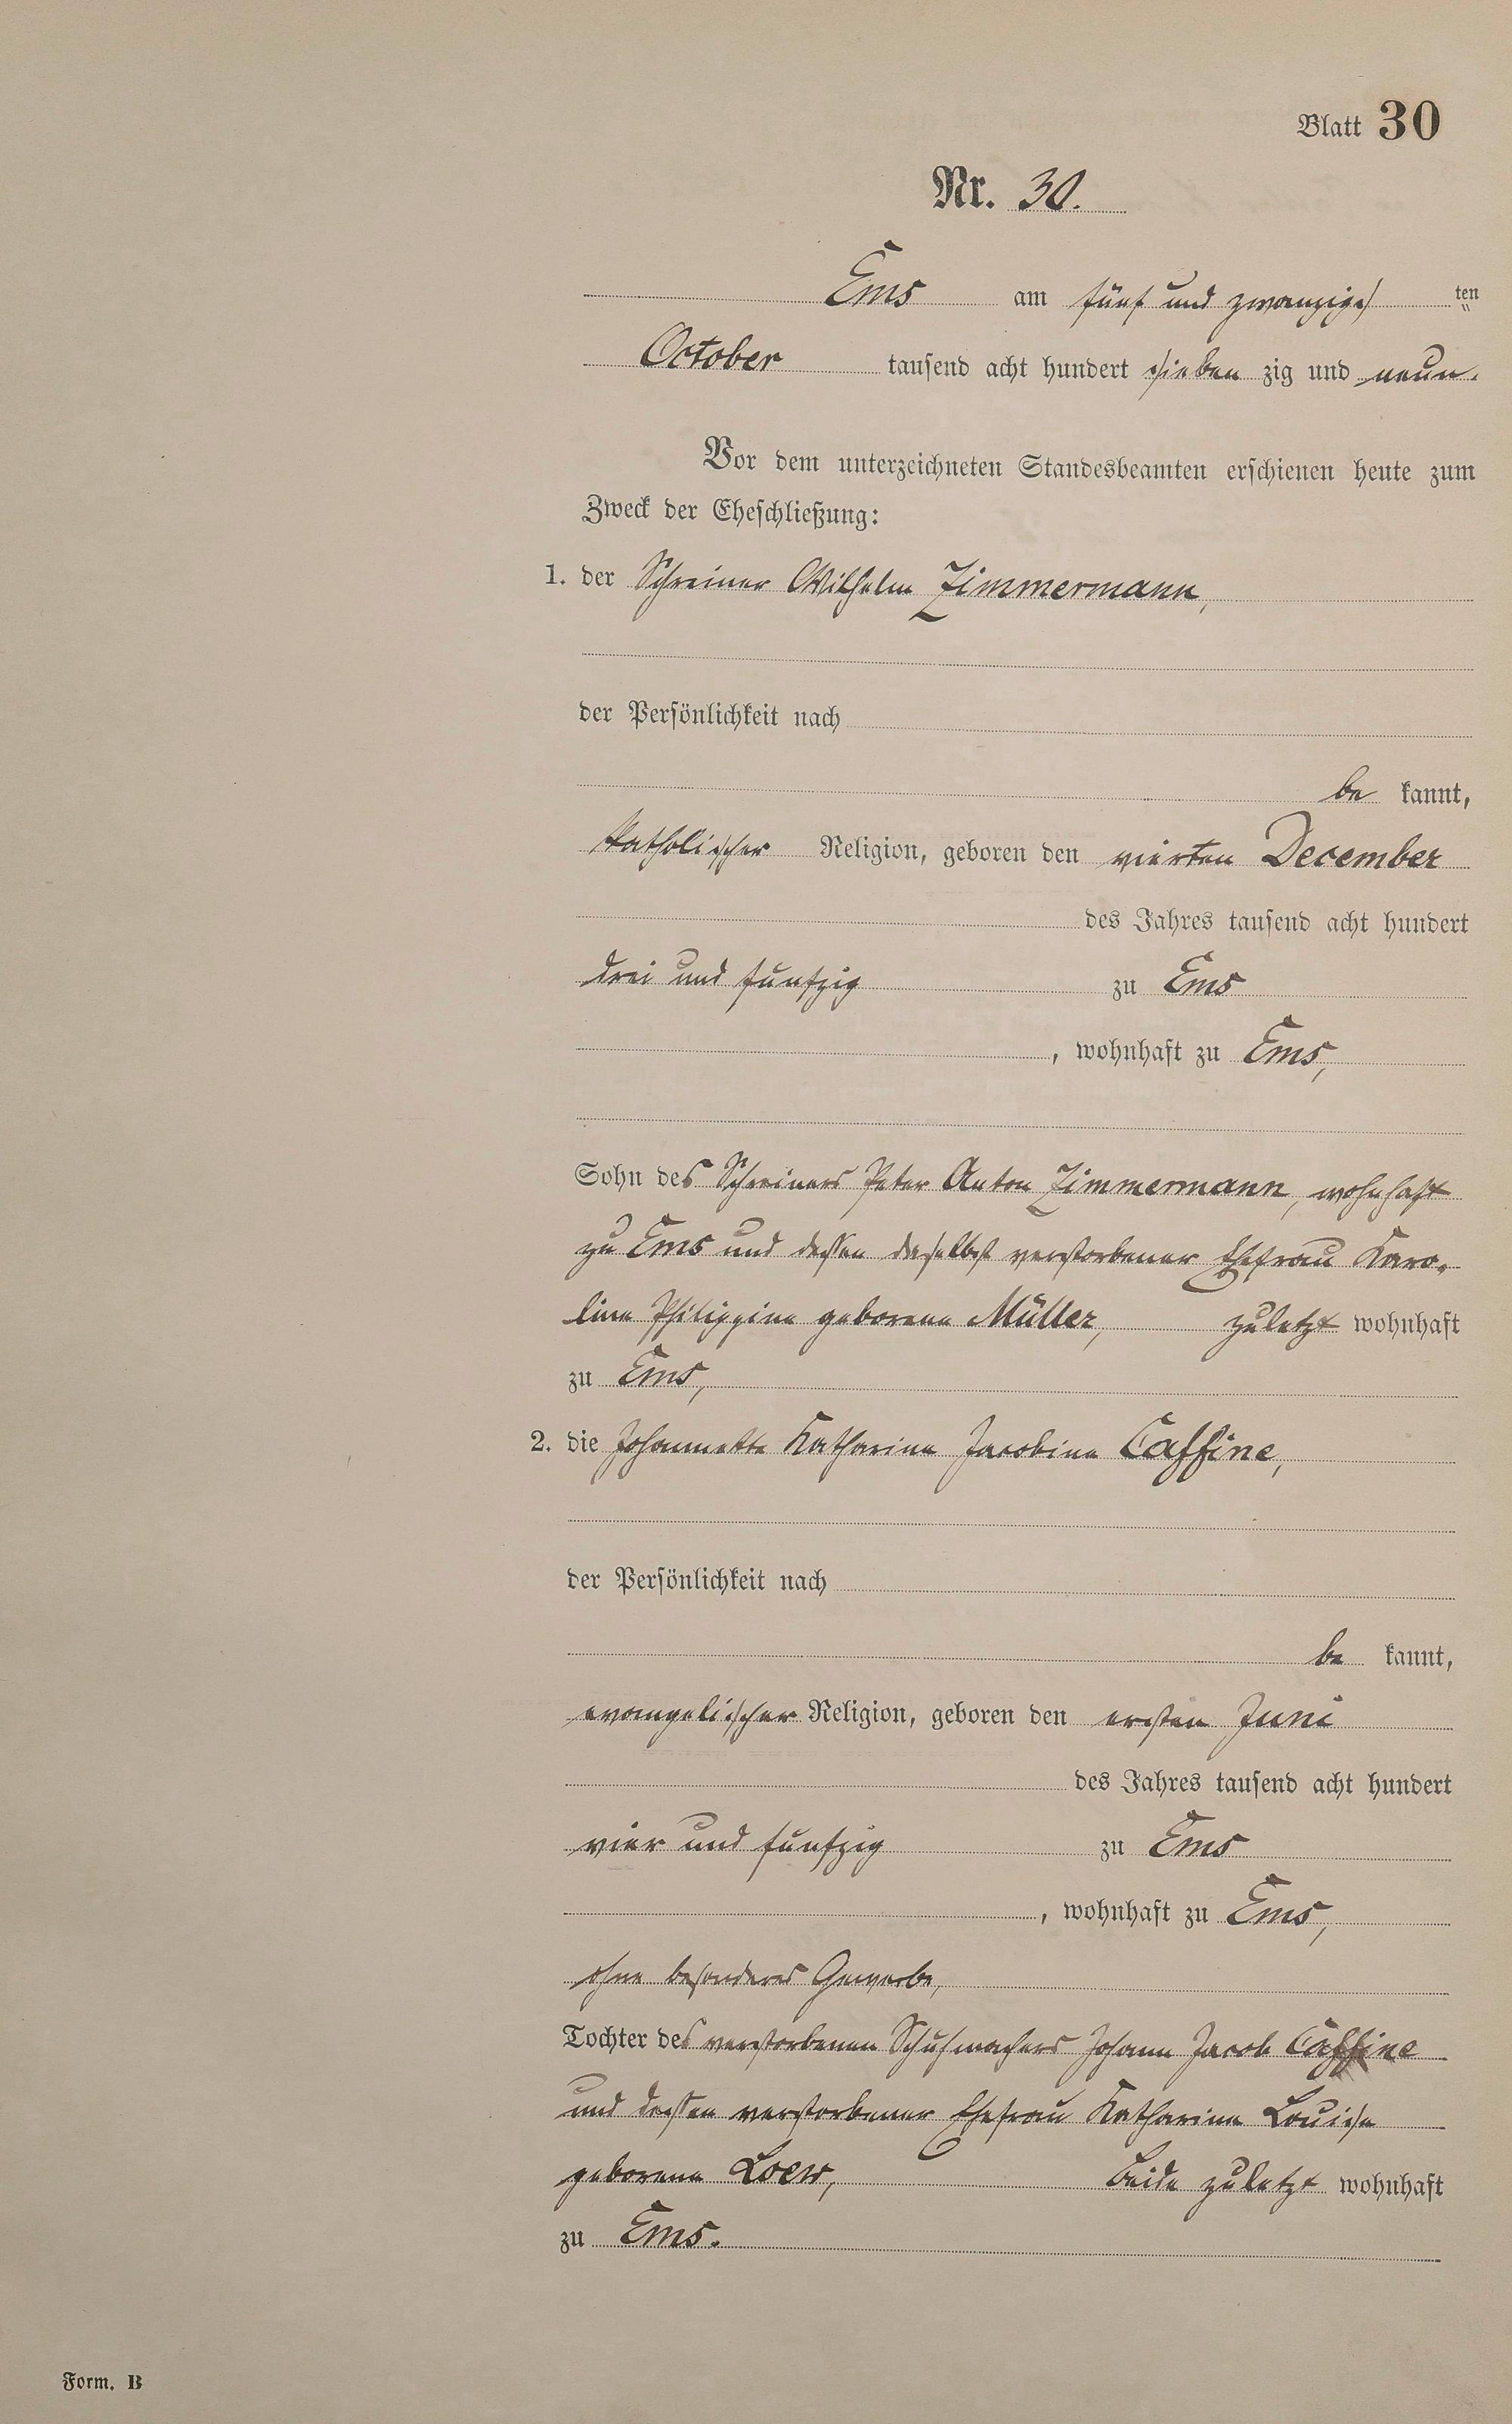 Blatt 30
Nr. 30.
Ems am fünf und zwanzigsten
October tausend acht hundert sieben zig und neun.
Vor dem unterzeichneten Standesbeamten erschienen heute zum
Zweck der Eheschließung:
1. der Schreiner Wilhelm Zimmermann,
der Persönlichkeit nach
be kannt,
katholischer Religion, geboren den vierten December
des Jahres tausend acht hundert
drei und fünfzig zu Ems
, wohnhaft zu Ems,
Sohn des Schreiners Peter Anton Zimmermann, wohnhaft
zu Ems und dessen daselbst verstorbener Ehefrau Karo-
line Philippine geborene Müller, zuletzt wohnhaft
zu Ems,
2. die Johannette Katharina Jacobina Caffine,
der Persönlichkeit nach
be kannt,
evangelischer Religion, geboren den ersten Juni
des Jahres tausend acht hundert
vier und fünfzig zu Ems
, wohnhaft zu Ems,
ohne besonderes Gewerbe,
Tochter des verstorbenen Schuhmachers Johann Jacob Caffine
und dessen verstorbener Ehefrau Katharina Louise
geborene Loew, beide zuletzt wohnhaft
zu Ems.
Form. B